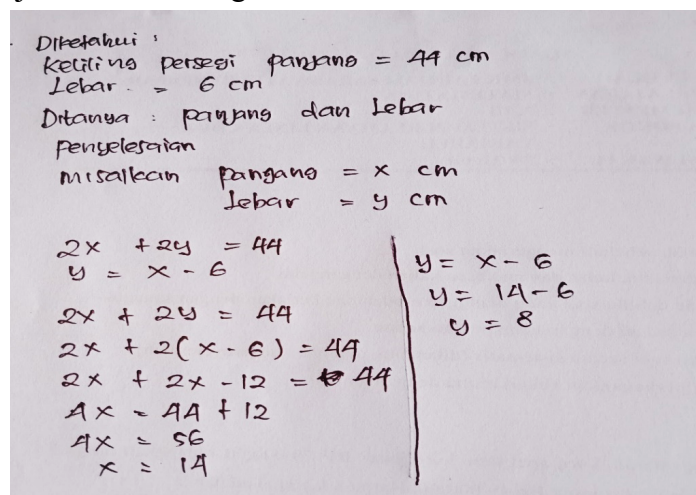 Diketahui :
Keliling persegi panjang = 44 cm
Lebar = 6 cm
Ditanya : panjang dan Lebar
Penyelesaian
Misalkan panjang = x cm
Lebar = y cm
2x + 2y = 44
y = x - 6
2x + 2y = 44
2x + 2(x - 6) = 44
2x + 2x - 12 = 44
4x = 44 + 12
4x = 56
x = 14
y = x - 6
y = 14 - 6
y = 8